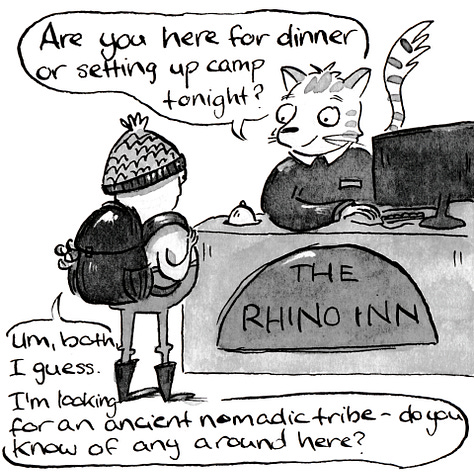 Are you here for dinner
or setting up camp
tonight?
THE
RHINO INN
Um, both,
I guess.
I'm looking
for an ancient nomadic tribe - do you
know of any around here?